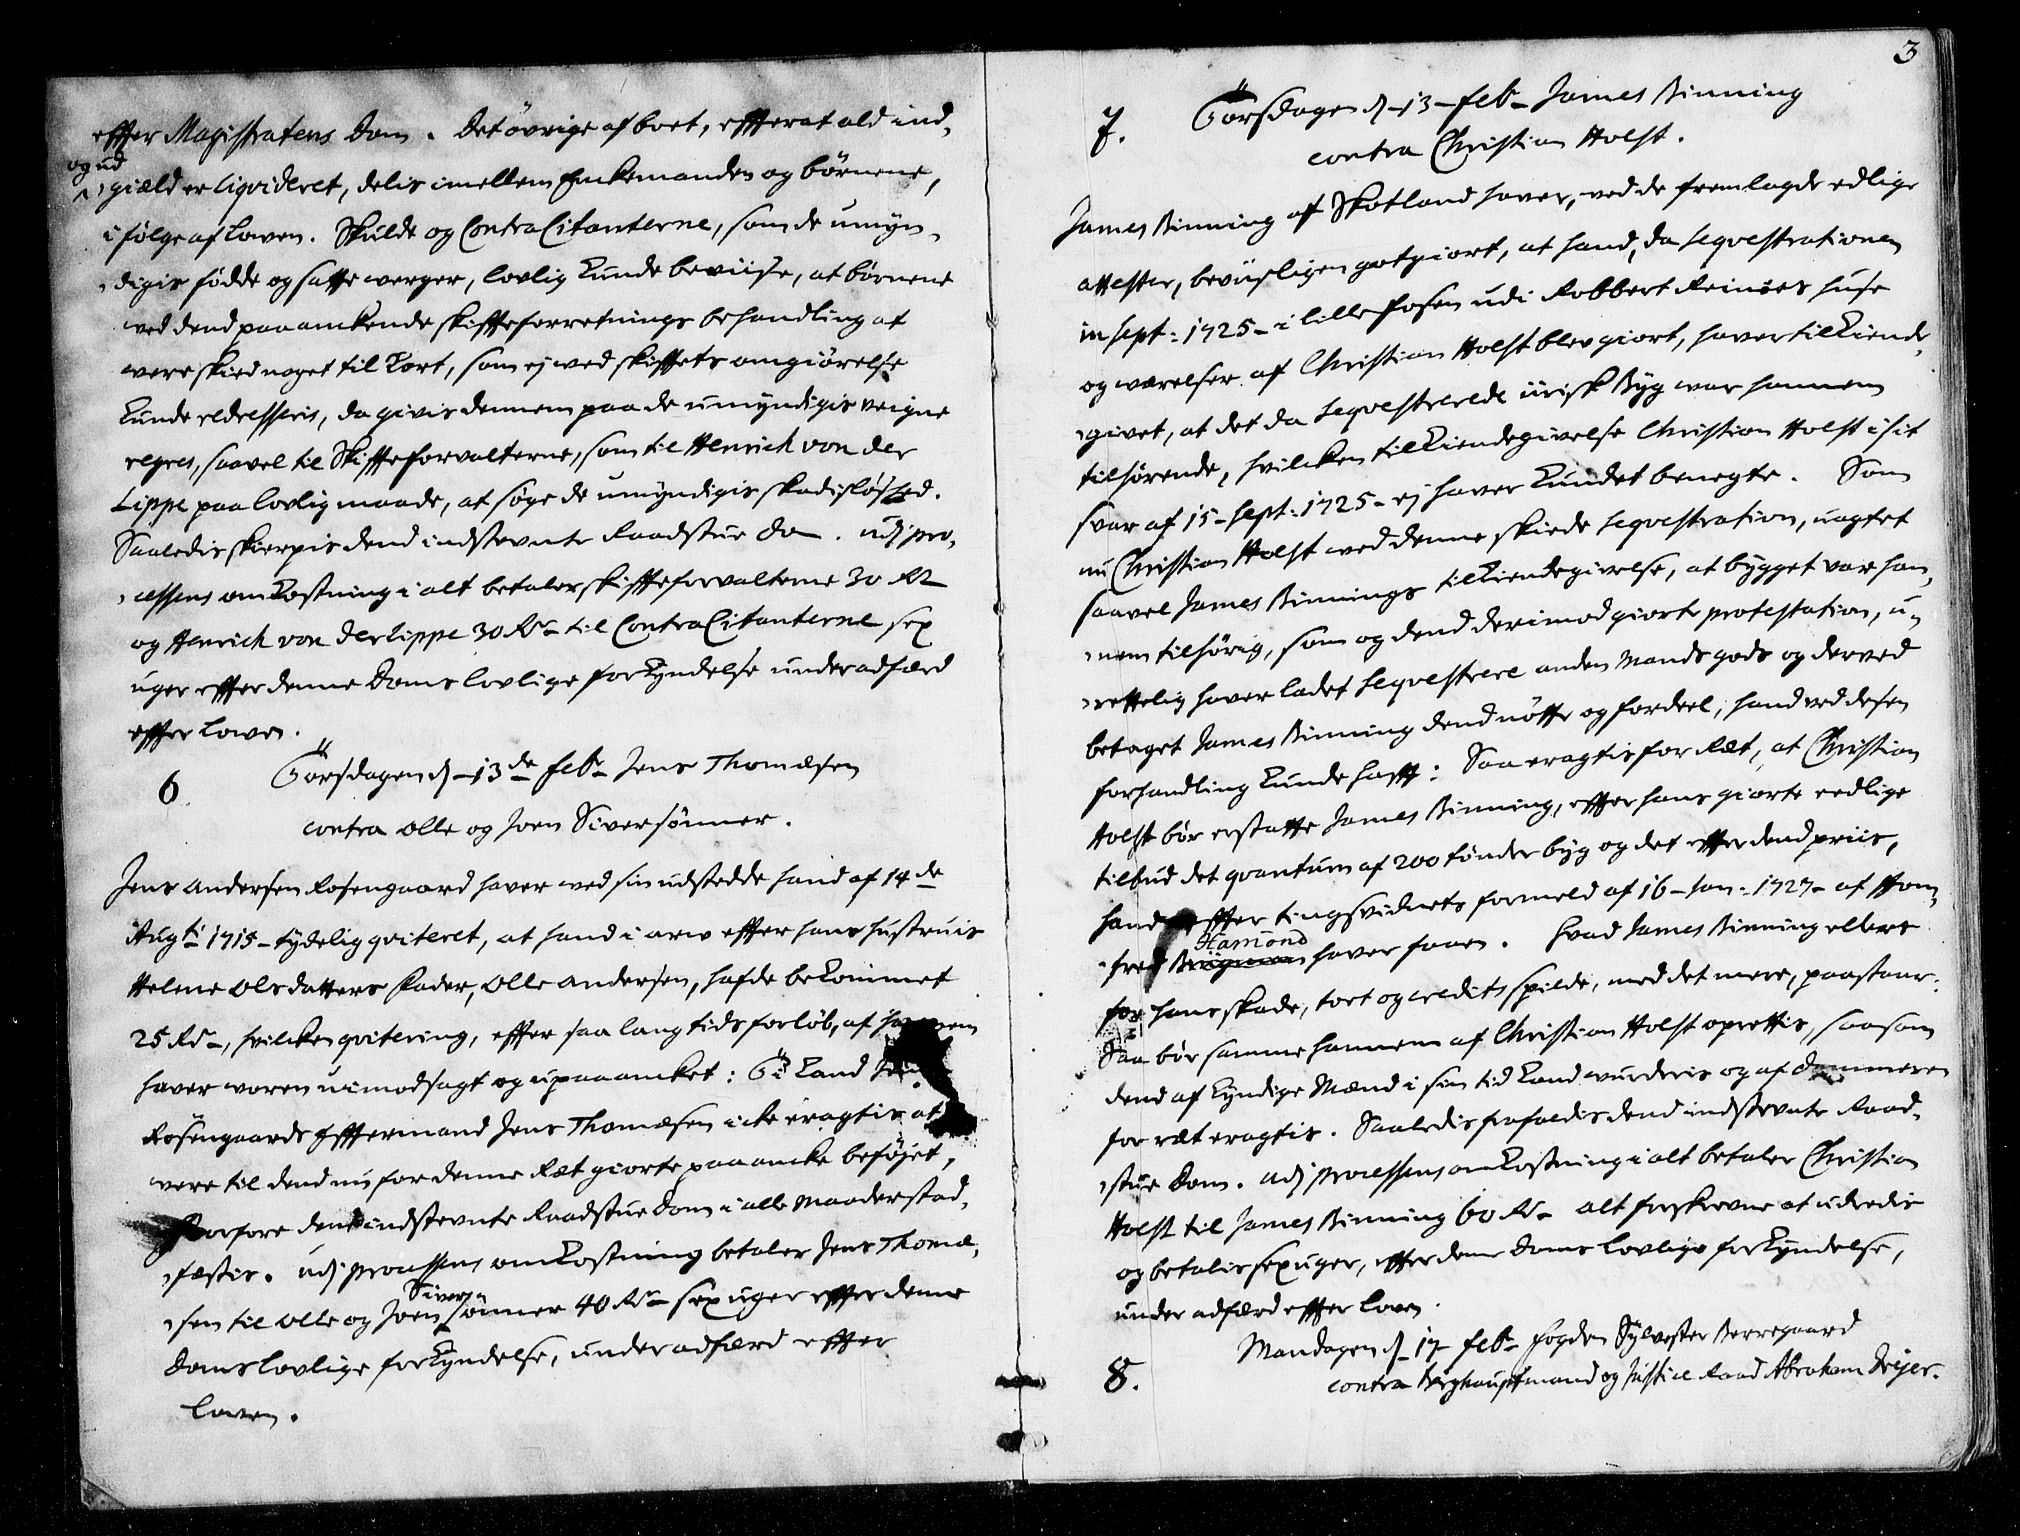 effter Magistratens Dom. Det övrige af boet, effterat ald ind„
og ud
„giæld er liqvideret, delis imellem Enkemanden og börnene,
i fölge af Lowen. Skulde og ContraCitanterne, som de umyn„
„digis födde og satte werger, lovlig kunde beviise, at börnene
ved dend paaankende skiffteforretnings behandling at
were skied noget til kort, som ej wed skifftets omgiörelse
kunde redresseris, da givis dennem paa de umyndigis veigne
regres, saavel til Skiffteforvalterne, som til Henrich von der
Lippe paa lovlig maade, at søge de umyndigis skadisløshed.
Saaledis skierpis dend indstevnte Raadstue Dom. udj pro„
„cessens omkostning i alt betaler skiffteforvalterne 30 Rdr
og Henrich von der Lippe 30 Rdr til ContraCitanterne sex
uger effter denne Doms lovlige forkyndelse under adfærd
effter Lowen.
6. Törsdagen d. 13de Febr. Jens Thomæsen
contra Olle og Joen Siversönner.
Jens Andersen Rosengaard haver wed sin udstedde haand af 14de
Augti 1715 tydelig qviteret, at hand i arw effter hans hustruis
Helene Olsdatters Fader, Olle Andersen, hafde bekommet
25 Rdr, hvilcken qvitering, effter saa lang tids forløb, af hannem
haver woren uimodsagt og upaaancket: Ti kand Jens
Rosengaards Efftermand Jens Thomæsen icke eragtis at
were til dend nu for denne Ræt giorte paaancke beföjet,
Hvorfore dend indstevnte Raadstue Dom i alle Maader stad„
„fæstis. udj Processens omkostning betaler Jens Thomæ„
„sen til Olle og Joen Siversönner 40 Rdr sex uger effter denne
Doms lovlige forkyndelse, under adfærd effter
Loven.
3
7. Törsdagen d. 13 Febr. James Binning
contra Christian Holst.
James Binning af Skotland haver, ved de fremlagde edlige
attester, beviisligen gotgiort, at hand, da seqvestrationen
in Sept: 1725 i lille Fosen udi Robbert Reinøes huse
og værelser af Christian Holst blev giort, haver tilkiende„
„givet, at det da seqvestrerede iirisk Byg war hannem
tilhörende, hvilcken tilkiendegivelse Christian Holst i sit
svar af 15 Sept: 1725 ej haver kundet benegte. Som
nu Christian Holst wed denne skiede seqvestration, uagtet
saavel James Binnings tilkiendegivelse, at bygget var han„
„nem tilhörig, som og dend derimod giorte protestation, u„
„rettelig haver ladet seqvestrere anden Mands gods og derved
betaget James Binning dend nötte og fordeel, hand ved desen
forhandling kunde hafft: Saa eragtis for Ræt, at Christian
Holst bör erstatte James Binning, effter hans giorte eedlige
tilbud det qvantum af 200 tönder byg og det effter dend priis,
hand effter tingsvidnets formeld af 16 Jan: 1727 af Hom„
„fred Hamond haver faaen. Hvad James Binning ellers
for hans skade, tort og credits spilde, med det mere, paastaar:
Saa bör samme hannem af Christian Holst oprettis, saasom
dend af kyndige Mænd i sin tid kand wurderis og af dommeren
for ræt eragtis. Saaledis frafaldis dend indstevnte Raad„
„stue Dom. udj Processens omkostning i alt betaler Christian
Holst til James Binning 60 Rdr alt forskrevne at udredis
og betalis sex uger, effter denne Doms lovlige forkyndelse,
under adfærd effter Loven.
8. Mandagen d. 17 Febr. Fogden Sylvester Berregaard
contra Berghauptmand og Justice Raad Abraham Dreyer.